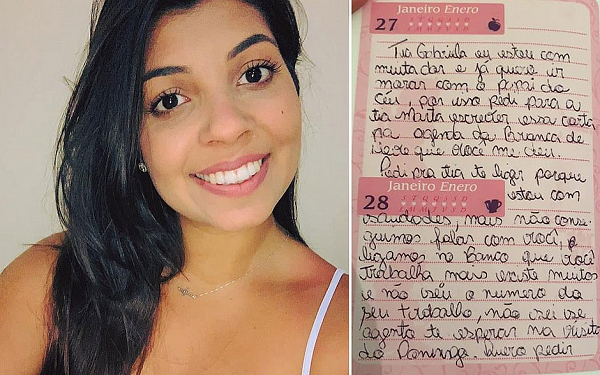 Janeiro Enero
27
Tia Gabriela eu estou com
muita dor e já quero ir
morar com o papai do
céu, por isso pedi para a
tia Marta escrever essa carta
na agenda da Branca de
Neve que você me deu.
Pedi pra tia te ligar porque
Janeiro Enero
28
estou com
saudades, mais não conse
guimos falar com você,
ligamos no Banco que você
trabalha mais existe muitos
e não sei o numero do
seu trabalho, não sei se
agento te esperar na visita
do Domingo. Quero pedir